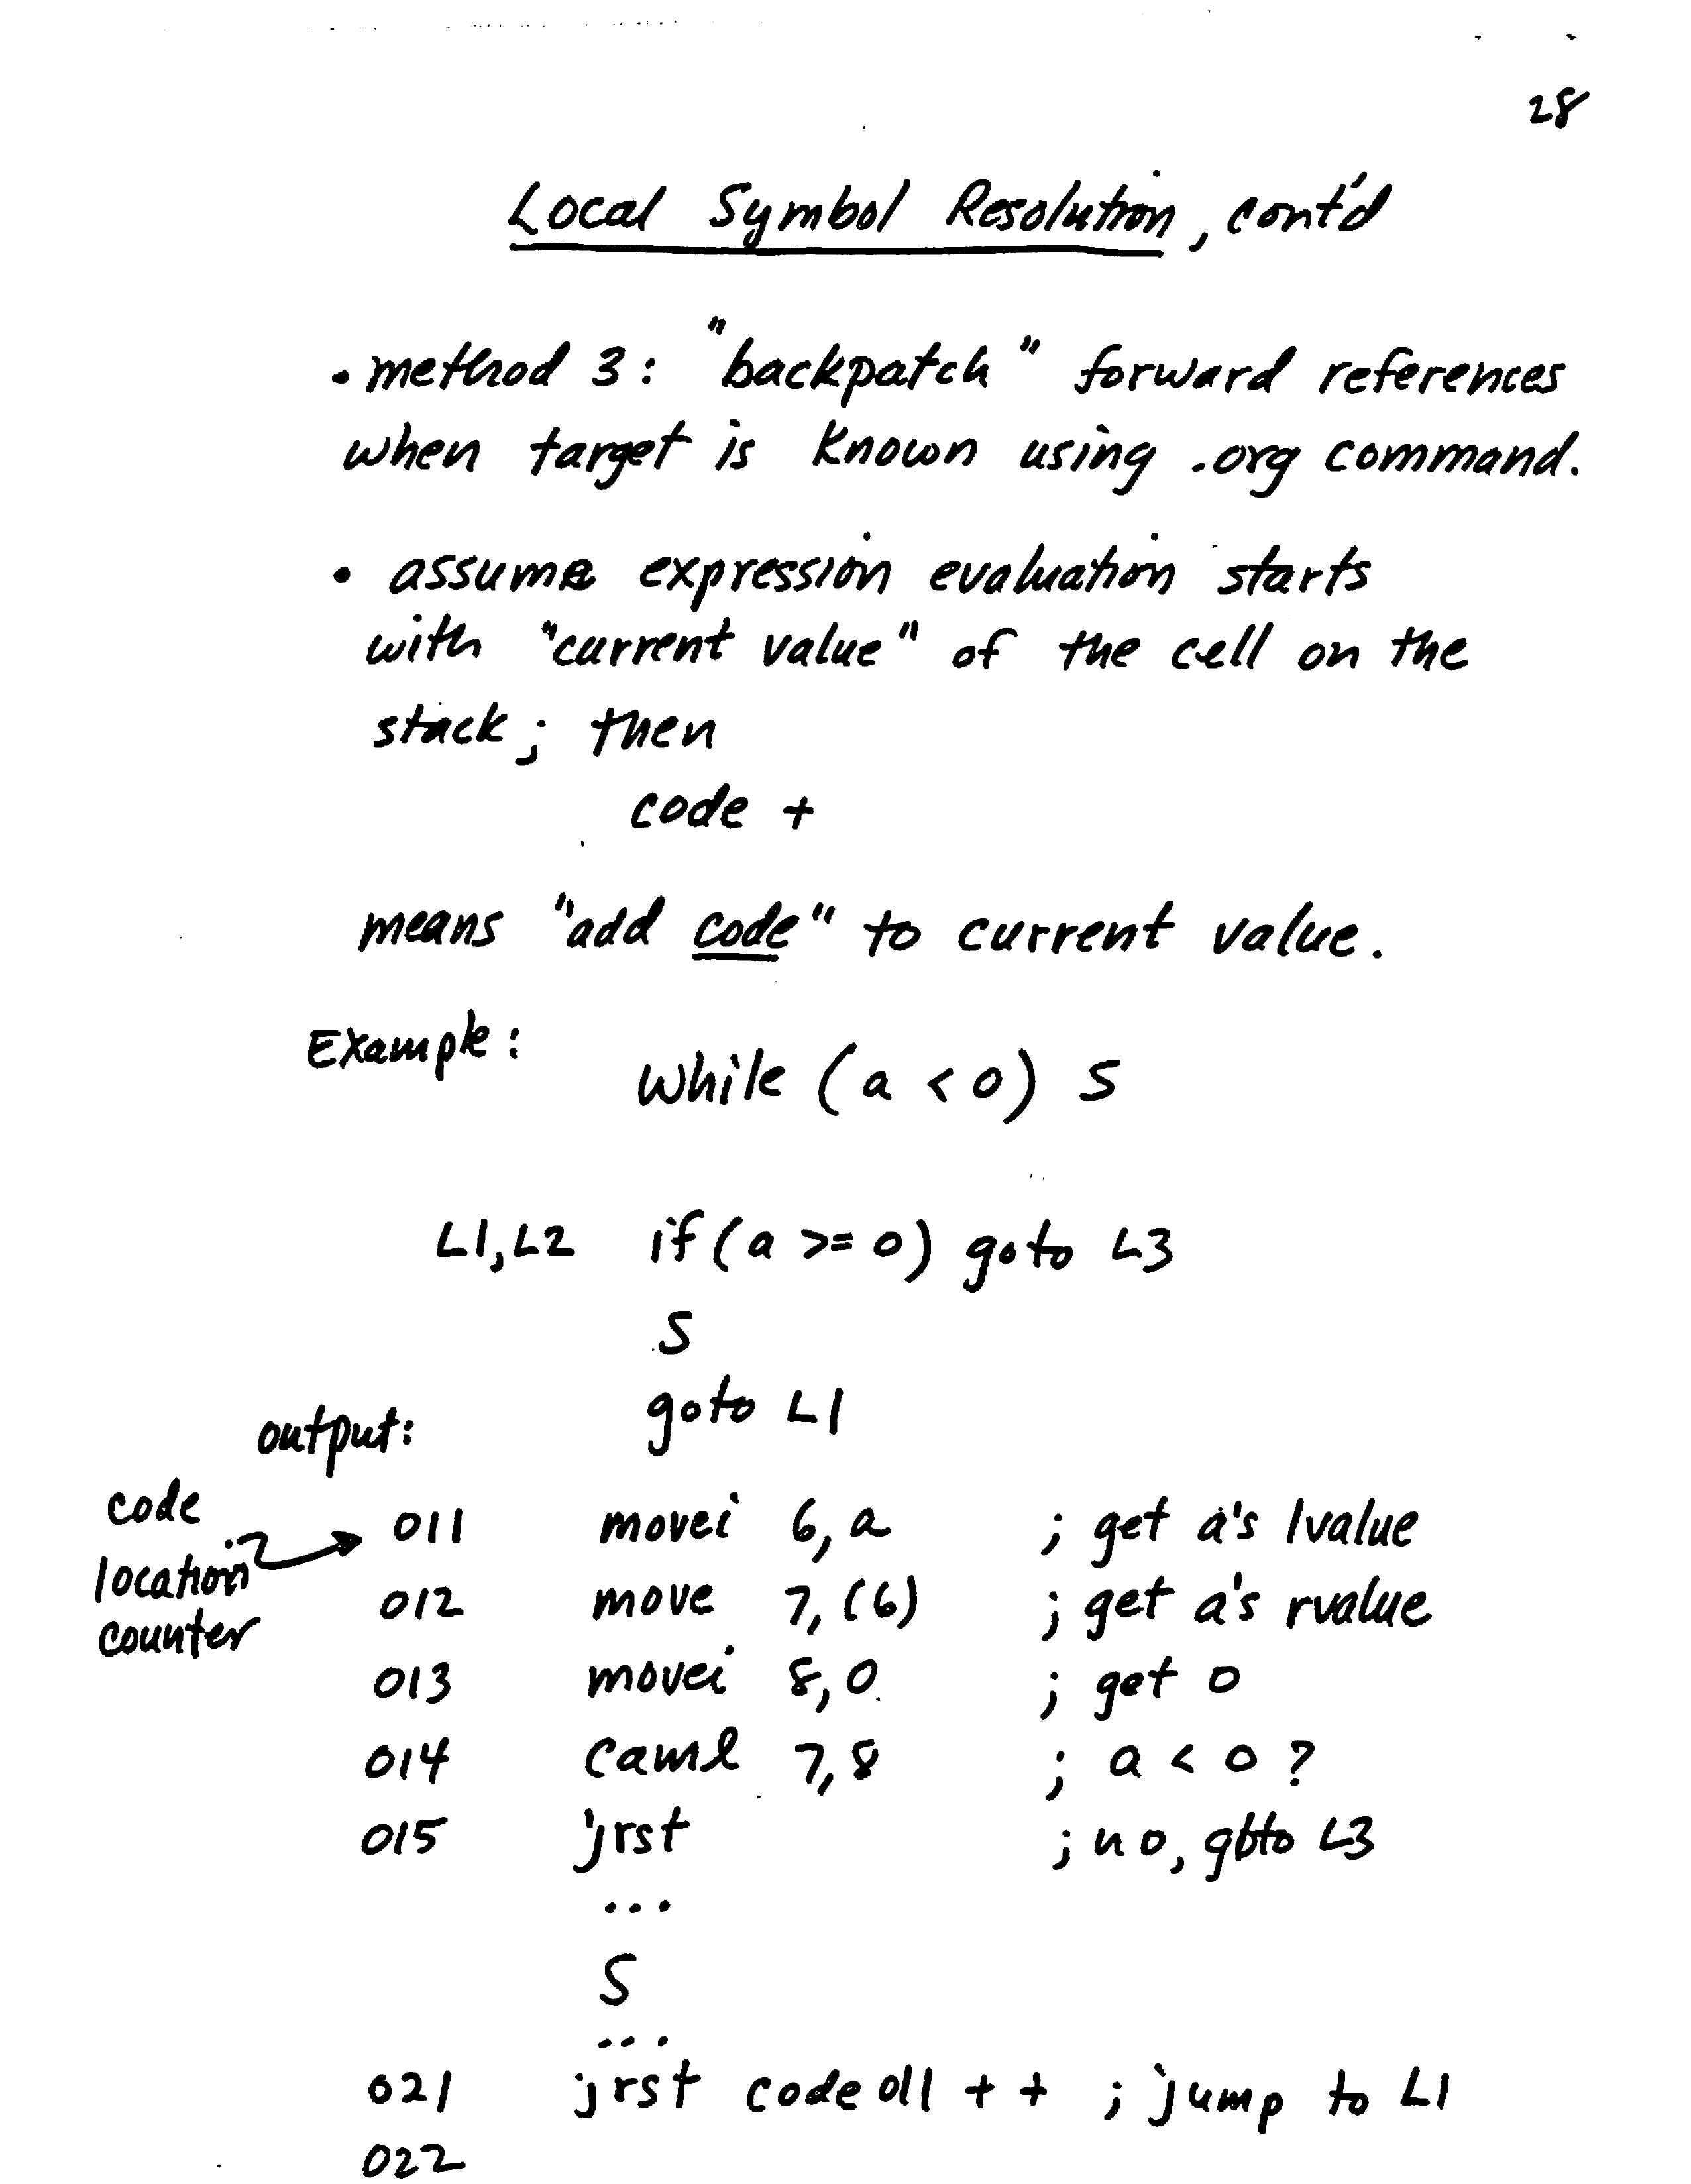 28
Local Symbol Resolution, cont'd
• method 3: "backpatch" forward references
when target is known using .org command.
• assume expression evaluation starts
with "current value" of the cell on the
stack; then
code +
means "add code" to current value.
Example:
while (a < 0) S
L1, L2 if (a >= 0) goto L3
S
goto L1
output:
code location counter
011 movei 6, a ; get a's lvalue
012 move 7, (6) ; get a's rvalue
013 movei 8, 0 ; get 0
014 caml 7, 8 ; a < 0 ?
015 jrst ; no, goto L3
...
S
...
021 jrst code 011 + + ; jump to L1
022